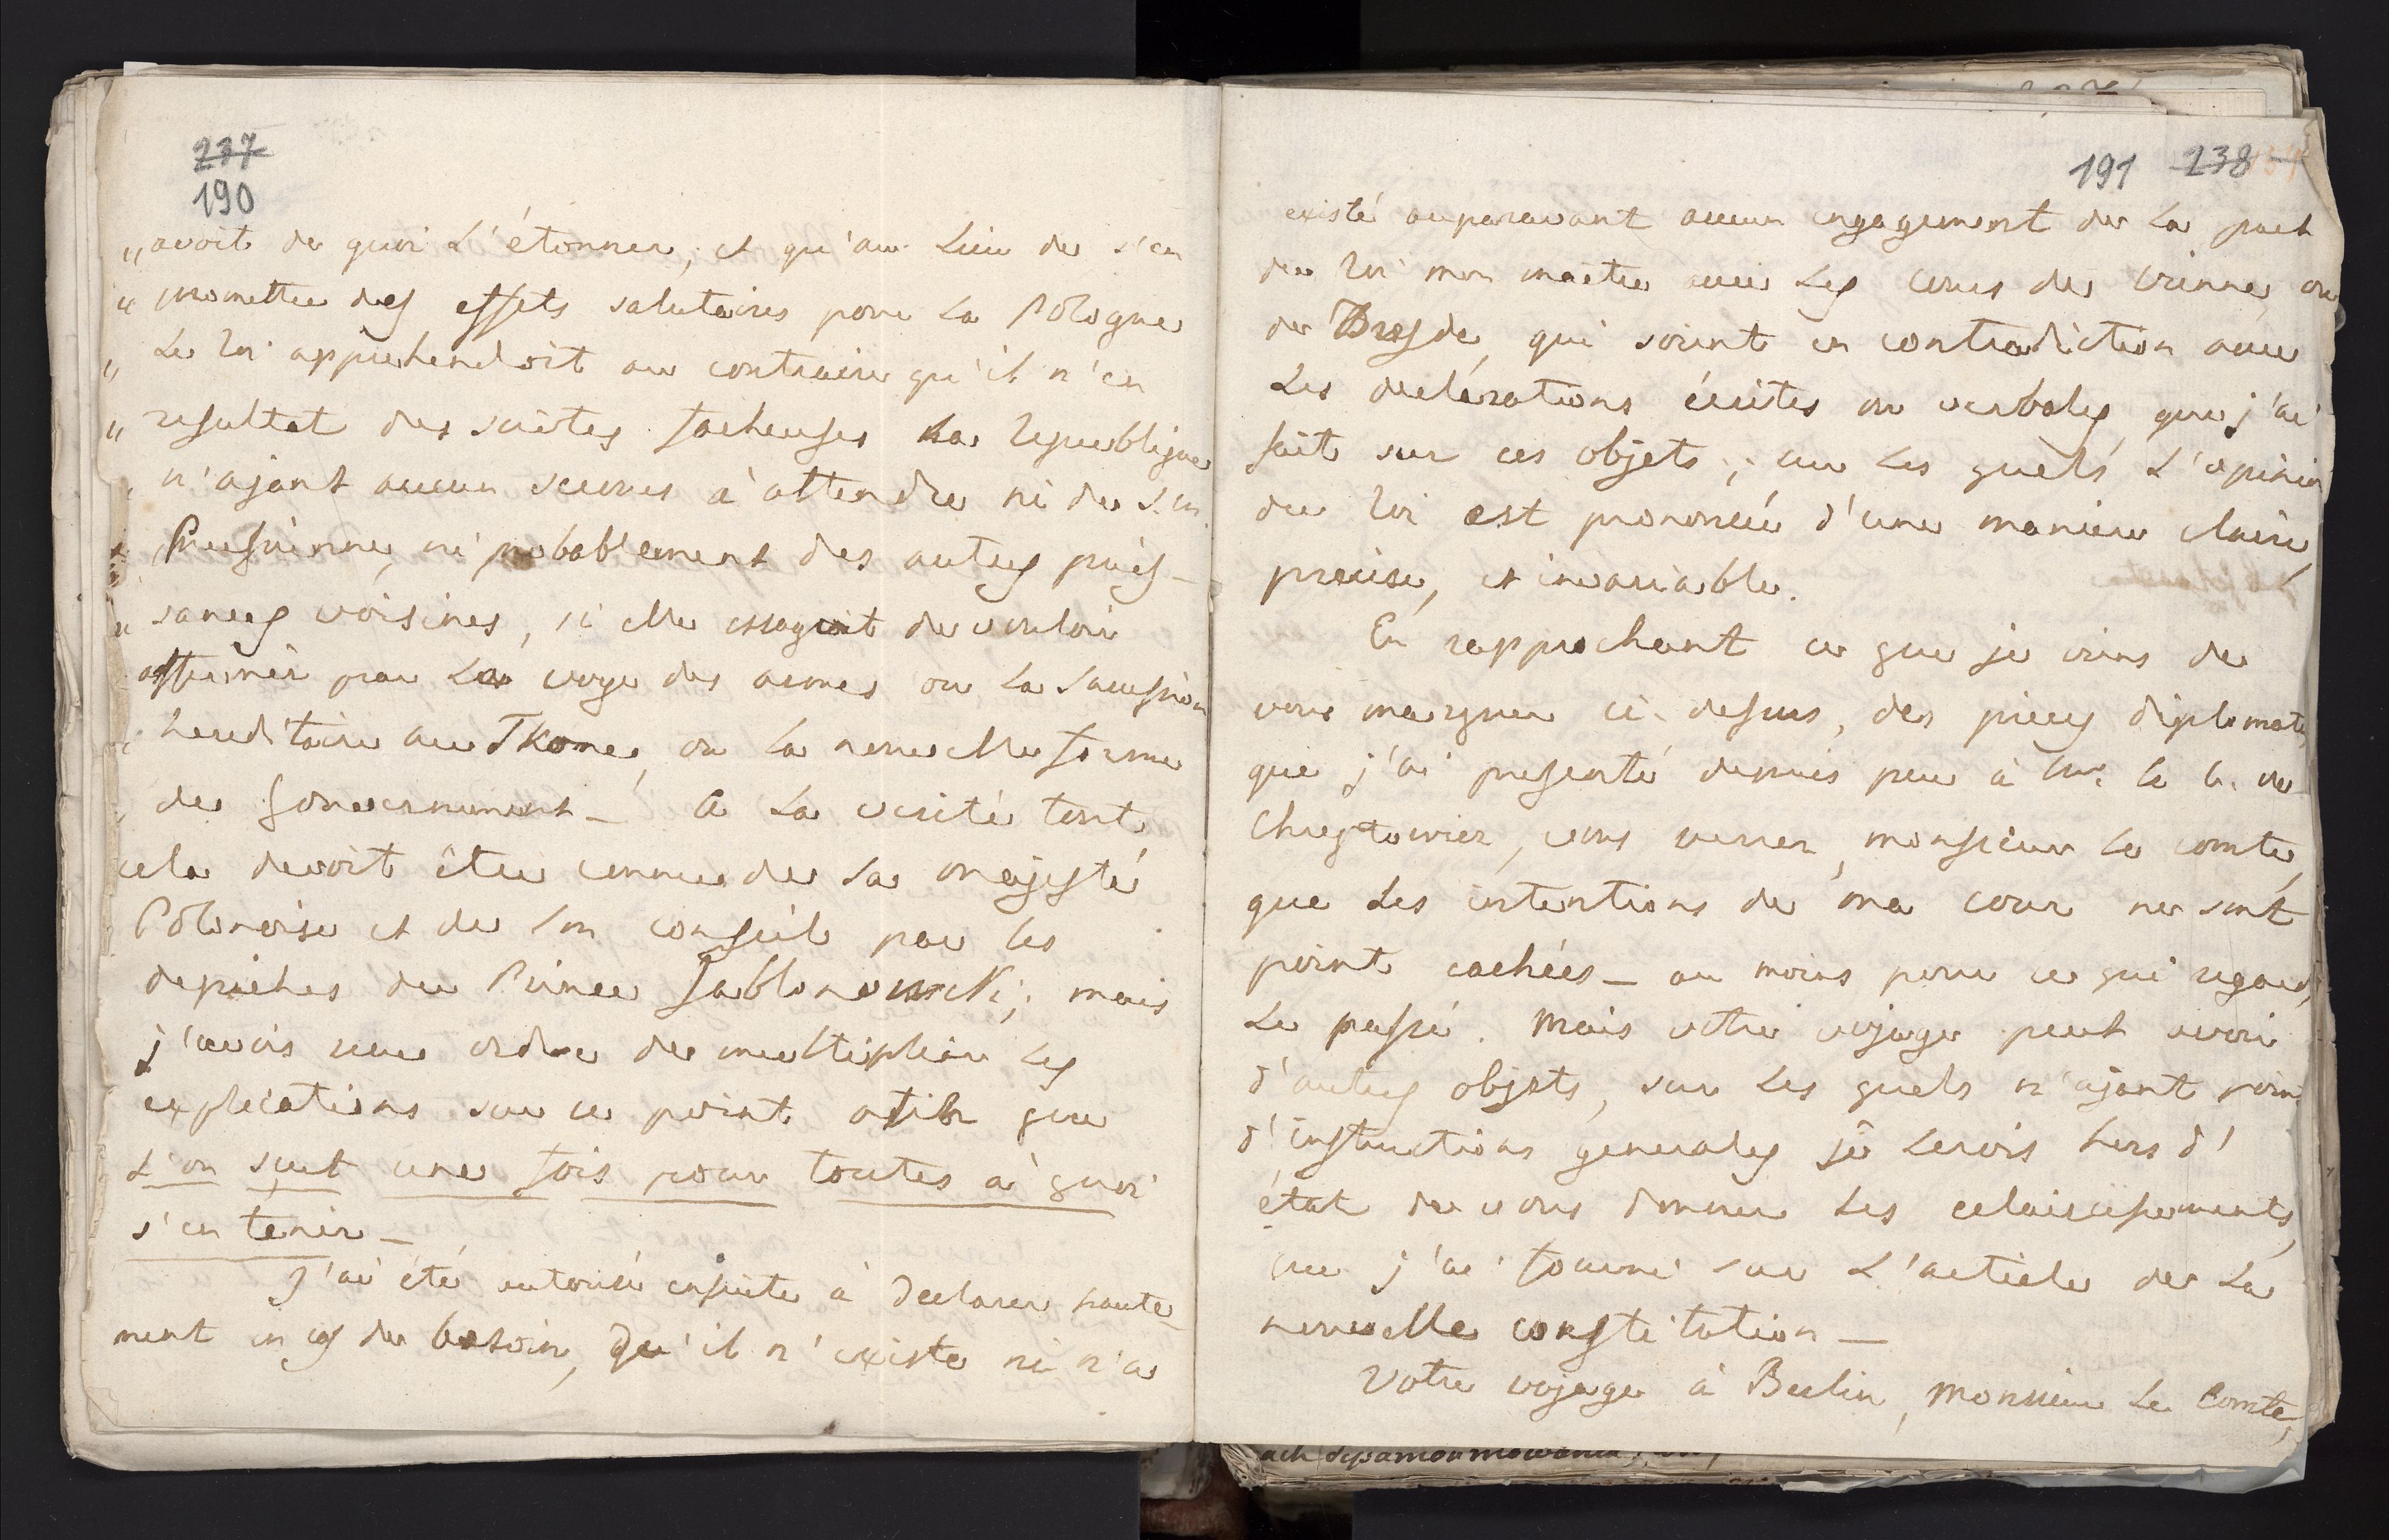 237
190
„ avoit de quoi s'étonner, et qu'au lieu de s'en
„ promettre des effets salutaires pour la Pologne
„ Le Roi apprehendoit au contraire qu'il n'en
„ resultat des suites facheuses La Republique
„ n'ajant aucun secours à attendre ni de S. M.
„ Prussienne, ni probablement des autres puis-
„ sances voisines, si elle essayoit de vouloir
affermir par La voye des armes ou La Succession
„ hereditaire au Thrône, ou la nouvelle forme
„ de gouvernement — A La verité tout
cela devoit être connu de Sa Majesté
Polonoise et de Son conseil par les
depêches du Prince Jablonowski; mais
j'avois reçu ordre de multiplier les
explications sur ce point afin que
L'on scut une fois pour toutes à quoi
s'en tenir —
J'ai été autorisé ensuite à declarer haute-
ment en cas de besoin, qu'il n'existe ni n'a
191 238
existé auparavant aucun engagement de La part
du Roi mon maitre avec Les cours de Vienne, ou
de Dresde, qui soient en contradiction avec
Les declarations écrites ou verbales, que j'ai
fait sur ces objets, sur Les quels L'opinion
du Roi est prononcée d'une maniere claire,
precise, et invariable.
En rapprochant ce que je viens de
vous marquer ci-dessus, des pieces diplomat.
que j'ai presenté depuis peu à Mr. le C. de
Chreptowicz, vous verrez, monsieur Le comte,
que Les intentions de ma cour ne sont
point cachées — au moins pour ce qui regarde
Le passé. Mais votre voyage peut avoir
d'autres objets, sur Les quels n'ajant point
d'instructions generales je serois hors d'
état de vous donner Les eclaircissements,
que j'ai fourni sur L'article de La
nouvelle constitution —
Votre voyage à Berlin, Monsieur Le Comte,